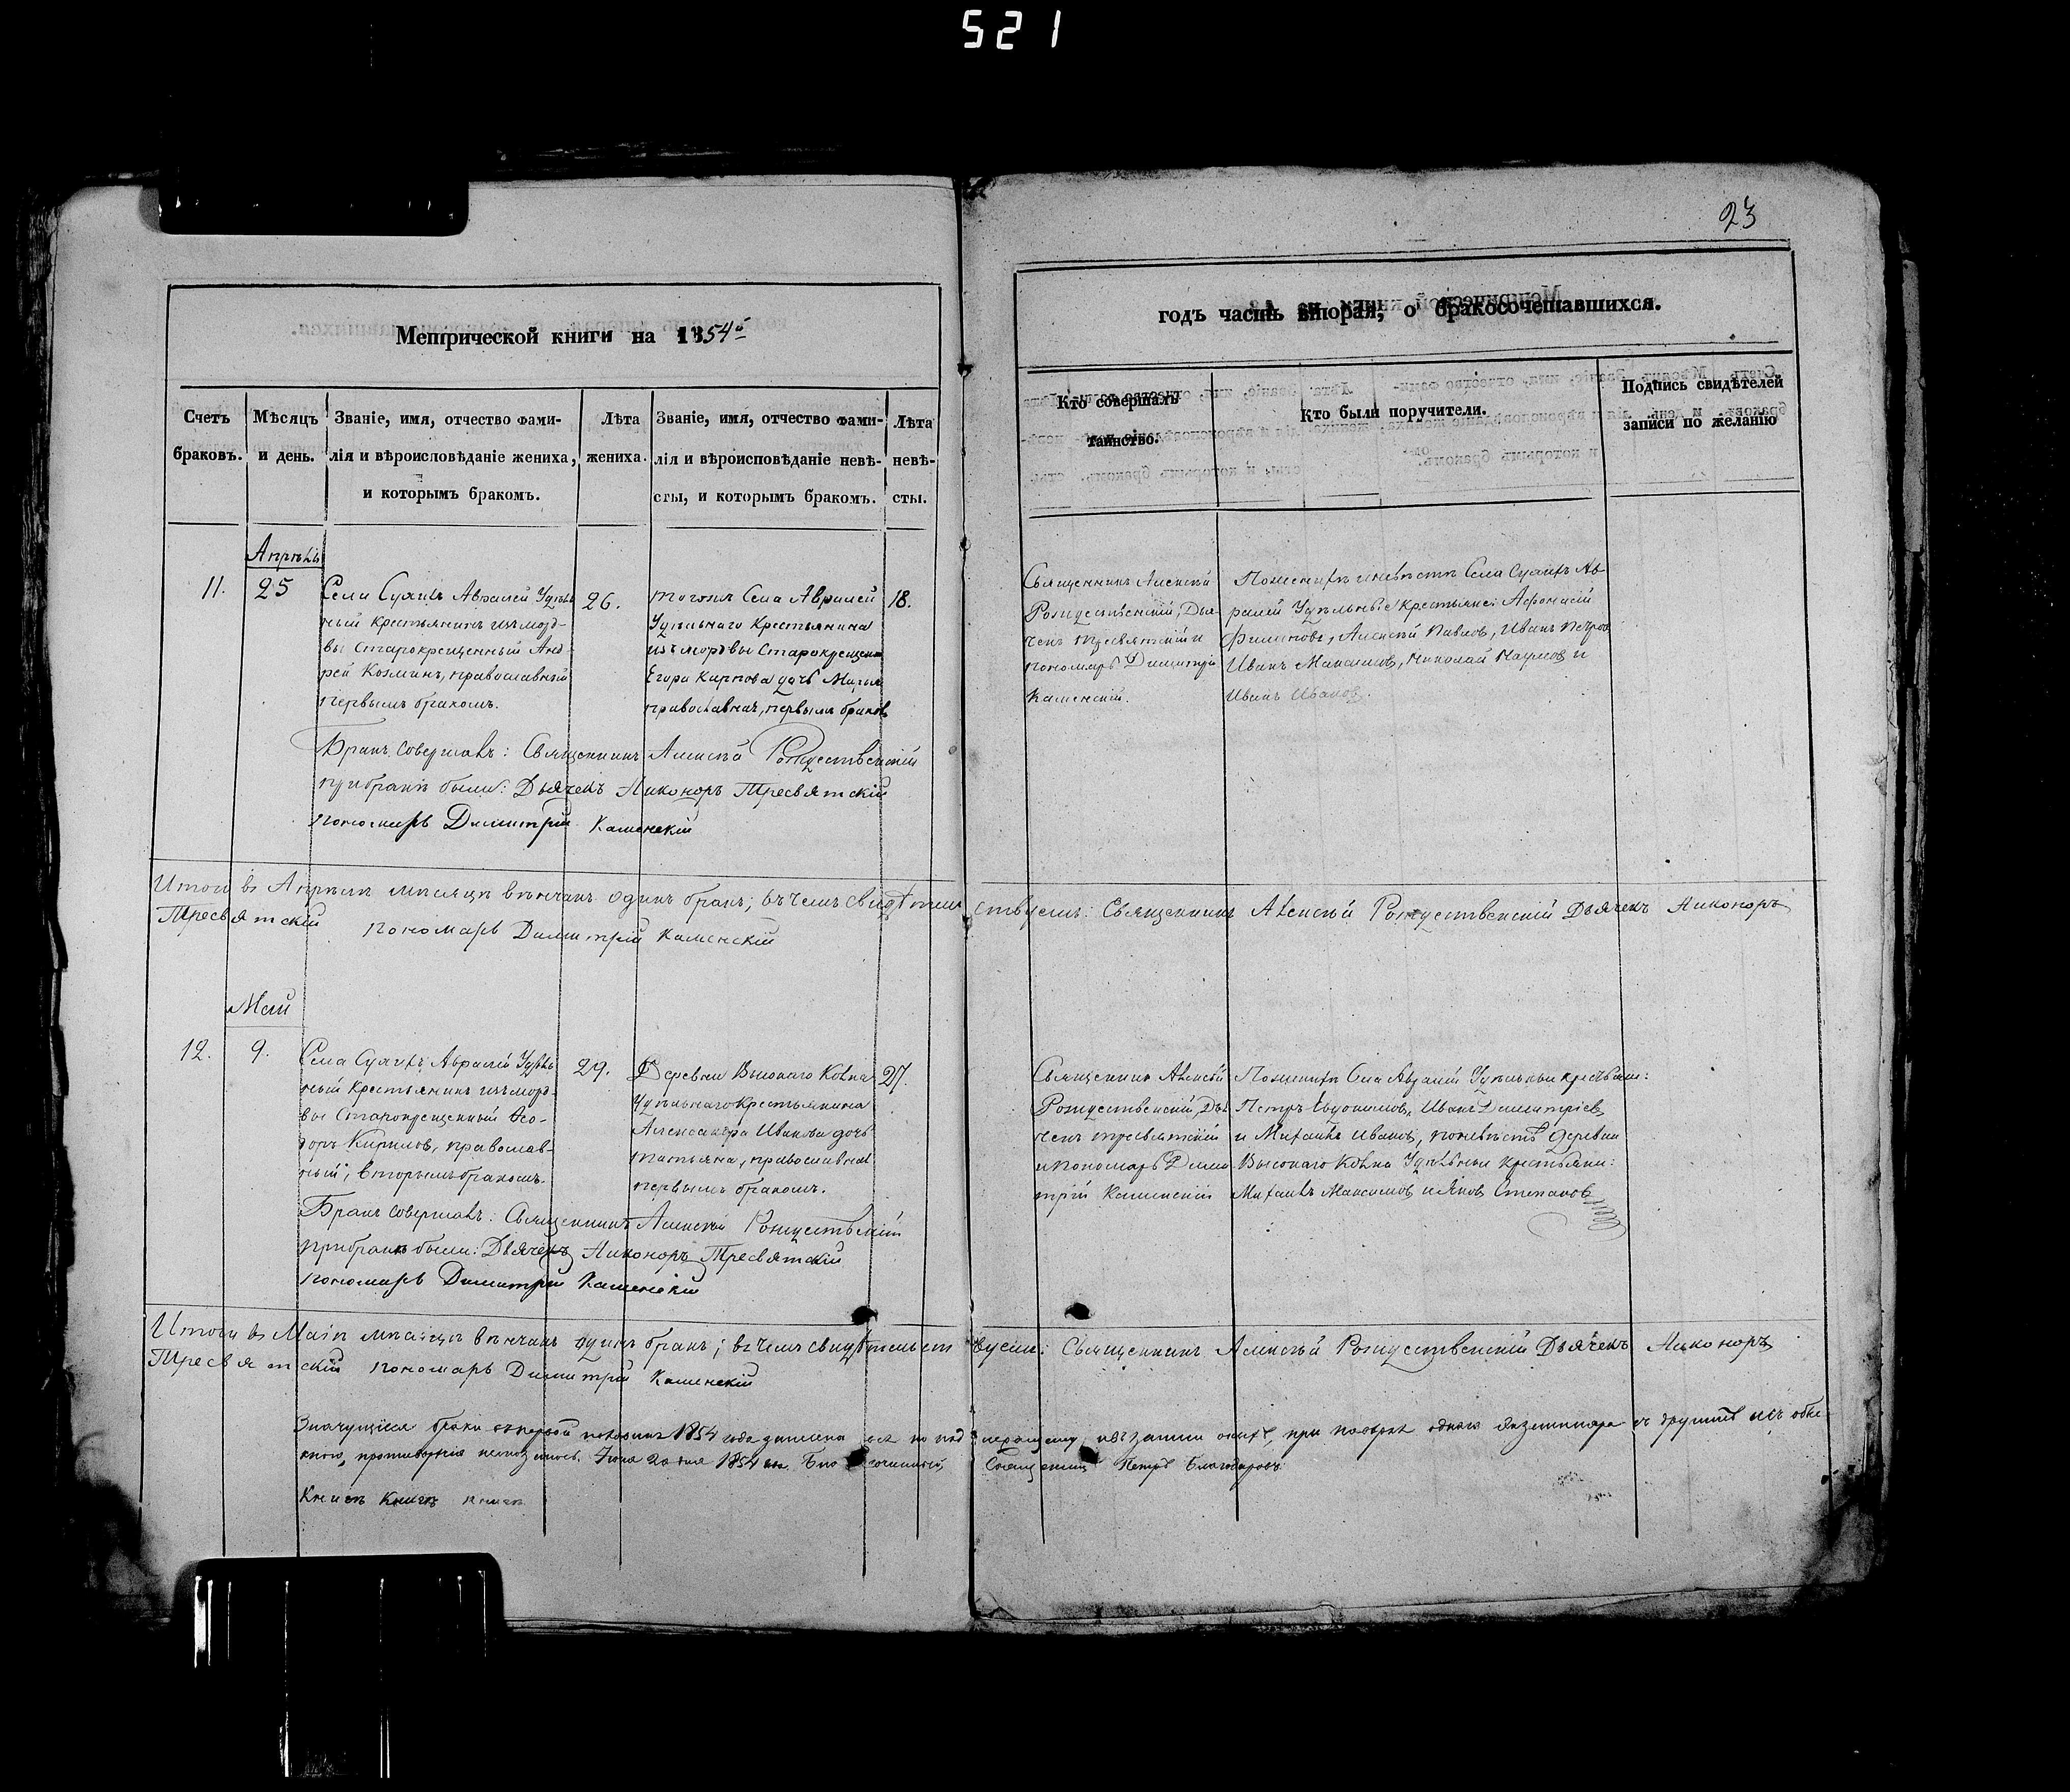 521
23
Метрической книги на 1854й
годъ часть вторая, о бракосочетавшихся.
Счетъ браковъ.
Мѣсяцъ и день.
Званіе, имя, отчество фами-
лія и вѣроисповѣданіе жениха,
и которымъ бракомъ.
Лѣта
жениха.
Званіе, имя, отчество фами-
лія и вѣроисповѣданіе невѣ-
сты, и которымъ бракомъ.
Лѣта
невѣ-
сты.
Кто совершалъ
таинство.
Кто были поручители.
Подпись свидѣтелей
записи по желанію
Апрѣль
11.
25
Села Авралей Удѣль
ный крестьянинъ изъ морд-
вы старокрещенный Анд
рей Козминъ, православный
первымъ бракомъ.
26.
тогожъ Села Авралей
Удѣльнаго Крестьянина
изъ мордвы Старокрещен
Егора Карпова дочь Марья
православная, первымъ бракомъ
18.
Священникъ Алексѣй
Рождественскій, Дья
чекъ Тресвятскій и
пономарь Димитрій
Каменскій.
По женихѣ и невѣстѣ Села Ав-
ралей Удѣльные Крестьяне: Афонасій
Филиповъ, Алексѣй Павлов, Иванъ Петров
Иванъ Максимов, Николай Наумов и
Иванъ Иванов.
Бракъ совершалъ: Священникъ Алексѣй Рождественскій
при бракѣ были: Дьячекъ Никоноръ Тресвятскій
пономарь Димитрій Каменскій
Итого въ Апрѣлѣ мѣсяцѣ вѣнчанъ одинъ бракъ; въ чемъ свидѣтельствуемъ: Священникъ Алексѣй Рождественскій Дьячекъ Никоноръ
Тресвятскій пономарь Димитрій Каменскій
Май
12.
9.
Села Авралей Удѣль
ный Крестьянинъ изъ морд-
вы Старокрещенный Ѳео-
доръ Кирилов, православ-
ный, вторымъ бракомъ.
29.
Деревни Высокаго Колка
Удѣльнаго Крестьянина
Александра Иванова дочь
Татьяна, православная
первымъ бракомъ.
27.
Священникъ Алексѣй
Рождественскій, Дья
чекъ Тресвятскій
и пономарь Дими
трій Каменскій
По женихѣ Села Авралей Удѣльные крестьяне:
Петръ Иванъ Димитріев,
и Михаилъ Иванов, по невѣстѣ деревни
Высокаго Колка Удѣльные Крестьяни:
Михаилъ Максимов и Яков Степанов
Бракъ совершалъ: Священникъ Алексѣй Рождественскій
при бракѣ были: Дьячекъ Никоноръ Тресвятскій
пономарь Димитрій Каменскій
Итого въ Маіѣ мѣсяцѣ вѣнчанъ одинъ бракъ; въ чемъ свидѣтельствуемъ: Священникъ Алексѣй Рождественскій Дьячекъ Никоноръ
Тресвятскій пономарь Димитрій Каменскій
Значущіеся браки въ первой половинѣ 1854 года записаны все по при одного экземпляра съ другимъ
1854 Благочинный, Священникъ Петръ Благодаровъ
Книгъ Книгъ книгъ